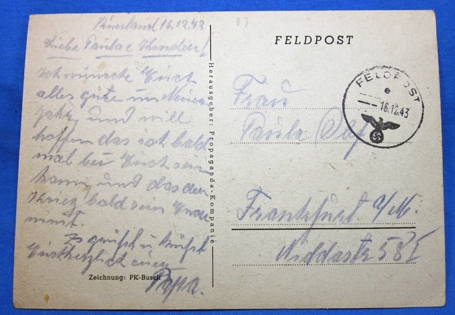 Finnland 16.12.43
Liebe Paula u Kinder!
Ich wünsche Euch
alles gute im Neuen
Jahr, und will
hoffen das ich bald
mal bei Euch sein
kann, und das der
Krieg bald sein Ende
nimt.
Es grüßt u küßt
Euch herzlich euer
Papa.
Zeichnung: PK-Busch
Herausgeber: Propaganda-Kompanie
FELDPOST
FELDPOST
16.12.43
Frau
Paula
Frankfurt a/M.
Niddastr 58 I